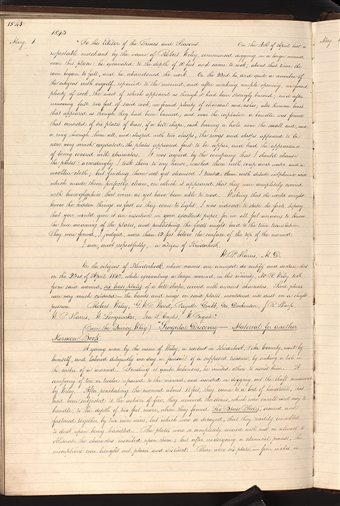 1843
1843
May 1
May 1
"To the Editor of the Times and Seasons. On the 16th of April last a
respectable merchant by the name of Robert Wiley, commenced digging in a large mound
near this place: he excavated to the depth of 10 feet and came to rock; about that time the
rain began to fall, and he abandoned the work. On the 23rd he and quite a number of
the citizens with myself, repaired to the mound, and after making ample opening, we found
plenty of rock, the most of which appeared as though it had been strongly burned; and after
removing full two feet of said rock, we found plenty of charcoal and ashes, also human bones
that appeared as though they had been burned; and near the a bundle was found
that consisted of six plates of brass, of a bell shape, each having a hole near the small end, and
a ring through them all, and clasped with two clasps, the rings and clasps appeared to be
iron very much oxydated; the plates appeared first to be copper, and had the appearance
of being covered with characters. It was agreed by the company that I should cleanse
the plates: accordingly I took them to my house, washed them with soap and water, and a
woollen cloth; but finding them not yet cleansed I treated them with dilute sulphuric acid
which made them perfectly clean, on which it appeared that they were completely covered
with hieroglyphics that none as yet have been able to read. Wishing that the world might
know the hidden things as fast as they come to light, I was induced to state the facts, hoping
that you would give it an insertion in your excellent paper, for we all feel anxious to know
the true meaning of the plates, and publishing the facts might lead to the true translation.
They were found, I judged, more than 12 feet below the surface of the top of the mound.
I am, most respectfully, a citizen of Kinderhook,
W. P. Harris, M. D.
We the citizens of Kinderhook, whose names are annexed do certify and declare that
on the 23rd of April 1843, while excavating a large mound, in this vicinity, Mr R. Wiley took
from said mound, six brass plates of a bell shape, covered with ancient characters. Said plates
were very much oxidated — the bands and rings on said plates mouldered into dust on a slight
pressure. Robert Wiley, G. W. F. Ward, Fayette Grubb, Geo. Deckenson, J. R. Sharp,
W. P. Harris, W. Longnecker, Ira S. Curtis, W. Fugate."
(From the Quincy Whig) "Singular Discovery — Material for another
Mormon Book
A young man by the name of Wiley, a resident in Kinderhook, Pike County, went by
himself, and labored diligently one day, in pursuit of a supposed treasure, by sinking a hole in
the centre of a mound. Finding it quite laborious, he invited others to assist him. A
company of ten or twelve repaired to the mound, and assisted in digging out the shaft commenced
by Wiley. After penetrating the mound about 11 feet, they came to a bed of limestone, that
had been subjected to the action of fire, they removed the stones, which were small and easy to
handle, to the depth of two feet more, when they found Six Brass Plates, secured and
fastened together by two iron wires, but which were so decayed, that they readily crumbled
to dust upon being handled. The plates were so completely covered with rust as almost to
obliterate the characters inscribed upon them; but after undergoing a chemical process, the
inscriptions were brought out plain and distinct. There were six plates in